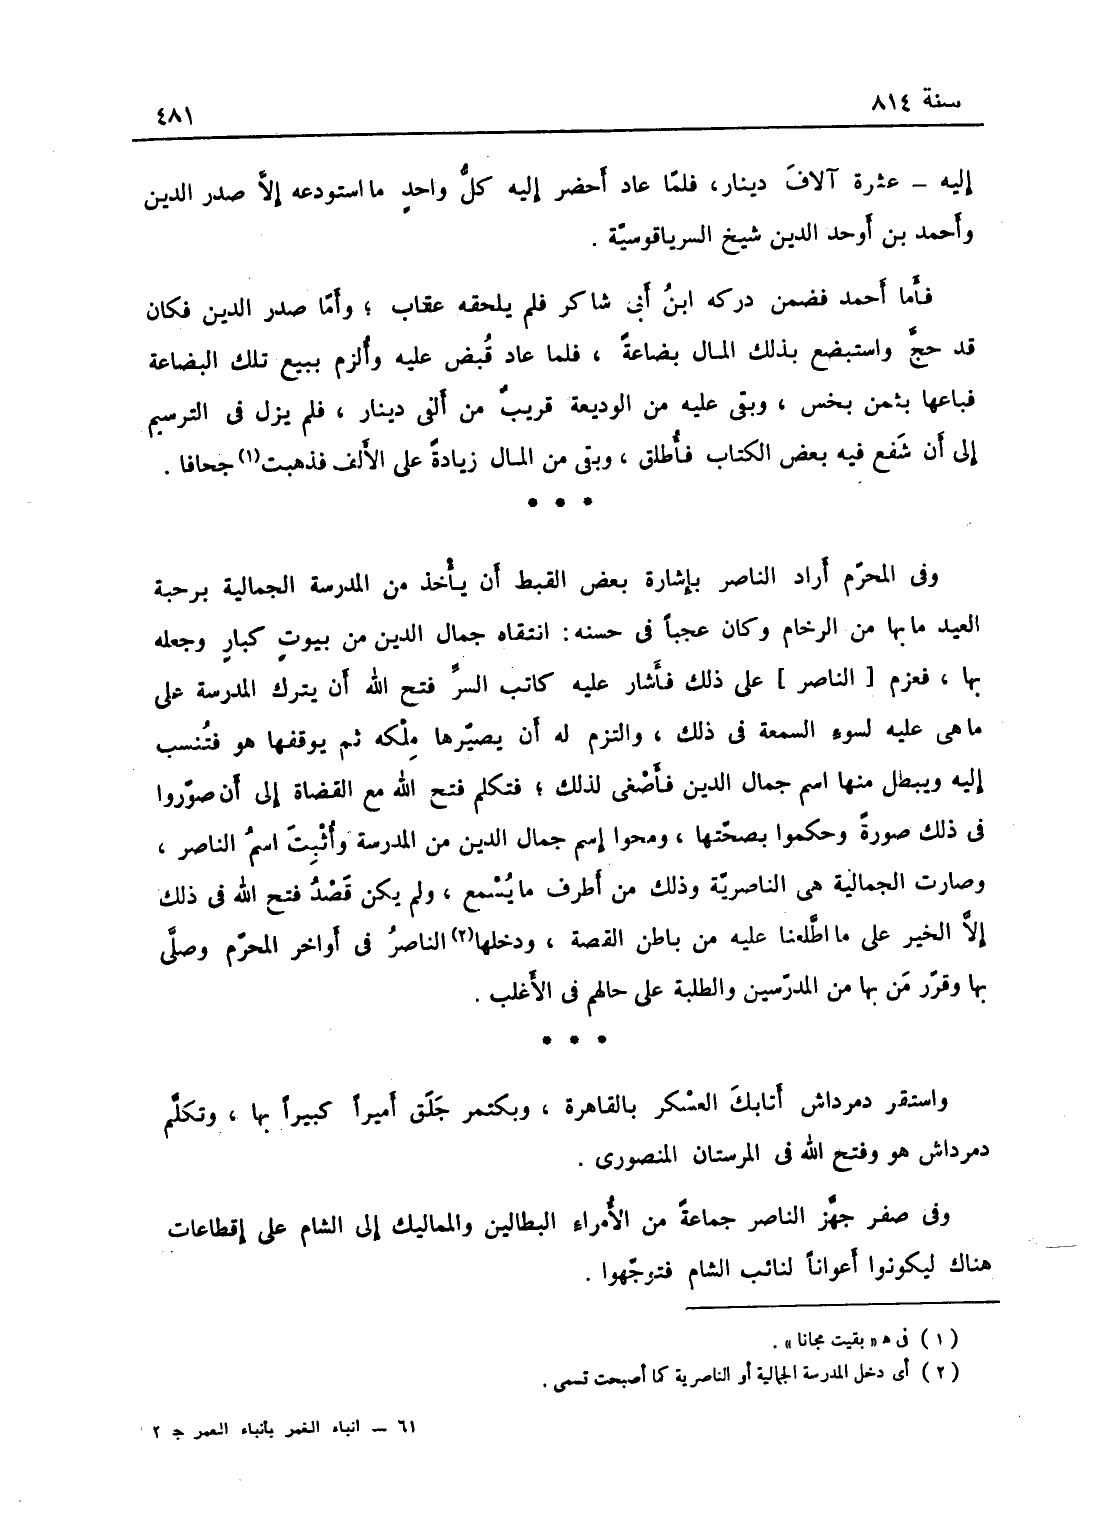 سنة ٨١٤
٤٨١
إليه ـ عثرة آلافَ دينار، فلمّا عاد أَحضر إليه كلُّ واحدٍ ما استودعه إلاَّ صدر الدين
وأَحمد بن أَوحد الدين شيخ السرياقوسيّة .
فأَما أَحمد فضمن دركه ابنُ أَبى شاكر فلم يلحقه عقاب ؛ وأَمّا صدر الدين فكان
قد حجَّ واستبضع بذلك المال بضاعةً ، فلما عاد قُبض عليه وأُلزم ببيع تلك البضاعة
فباعها بثمن بخس ، وبقى عليه من الوديعة قريبٌ من أَلفى دينار ، فلم يزل فى الترسيم
إلى أَن شَفع فيه بعض الكتاب فأُطلق ، وبقى من المال زيادةً على الأَلف فذهبت(١) جحافا .
* * *
وفى المحرّم أَراد الناصر بإشارة بعض القبط أَن يأْخذ من المدرسة الجمالية برحبة
العيد ما بها من الرخام وكان عجباً فى حسنه : انتقاه جمال الدين من بيوتٍ كبارٍ وجعله
بها ، فعزم [ الناصر ] على ذلك فأَشار عليه كاتب السرِّ فتح الله أَن يترك المدرسة على
ما هى عليه لسوء السمعة فى ذلك ، والتزم له أَن يصيّرها مِلْكه ثم يوقفها هو فتُنسب
إليه ويبطل منها اسم جمال الدين فأَصْغى لذلك ؛ فتكلم فتح الله مع القضاة إلى أَن صوّروا
فى ذلك صورةً وحكموا بصحّتها ، ومحوا إسم جمال الدين من المدرسة وأُثْبِتَ اسمُ الناصر ،
وصارت الجمالية هى الناصريّة وذلك من أَطرف ما يُسْمع ، ولم يكن قَصْدُ فتح الله فى ذلك
إلاَّ الخير على ما اطَّلعنا عليه من باطن القصة ، ودخلها(٢) الناصرُ فى أَواخر المحرّم وصلَّى
بها وقرّر مَن بها من المدرّسين والطلبة على حالهم فى الأَغلب .
* * *
واستقر دمرداش أَتابكَ العسْكر بالقاهرة ، وبكتمر جَلَق أَميراً كبيراً بها ، وتكلَّم
دمرداش هو وفتح الله فى المرستان المنصورى .
وفى صفر جهَّز الناصر جماعةً من الأُمراء البطالين والمماليك إلى الشام على إقطاعات
هناك ليكونوا أَعواناً لنائب الشام فتوجّهوا .
( ١ ) فى ه « بقيت مجانا » .
( ٢ ) أى دخل المدرسة الجمالية أو الناصرية كما أصبحت تسمى .
٦١ ـ انباء الغمر بأنباء العمر ج ٢